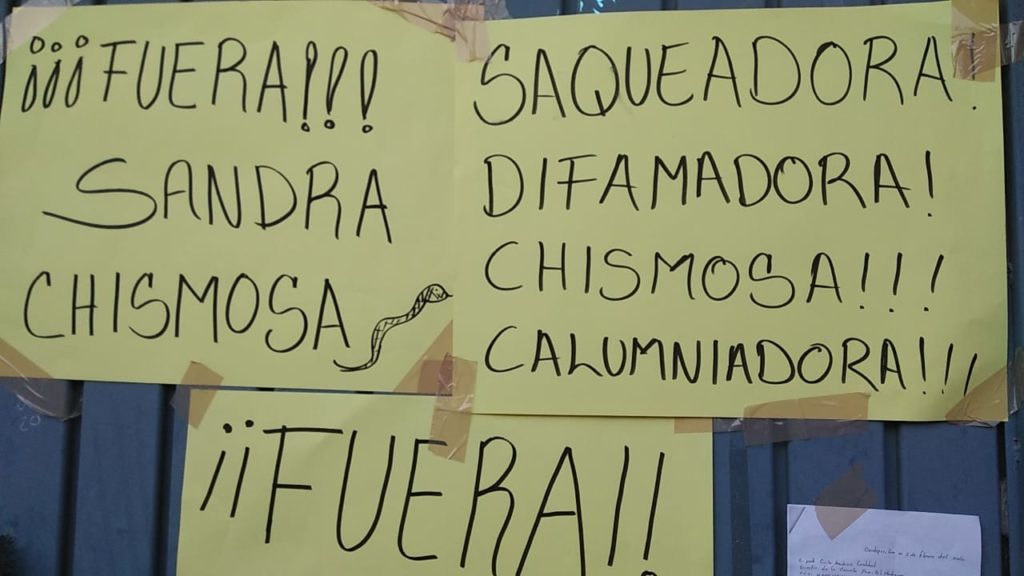 ¡¡¡FUERA!!!
SANDRA
CHISMOSA
SAQUEADORA!
DIFAMADORA!
CHISMOSA!!!
CALUMNIADORA!!!
¡¡FUERA!!